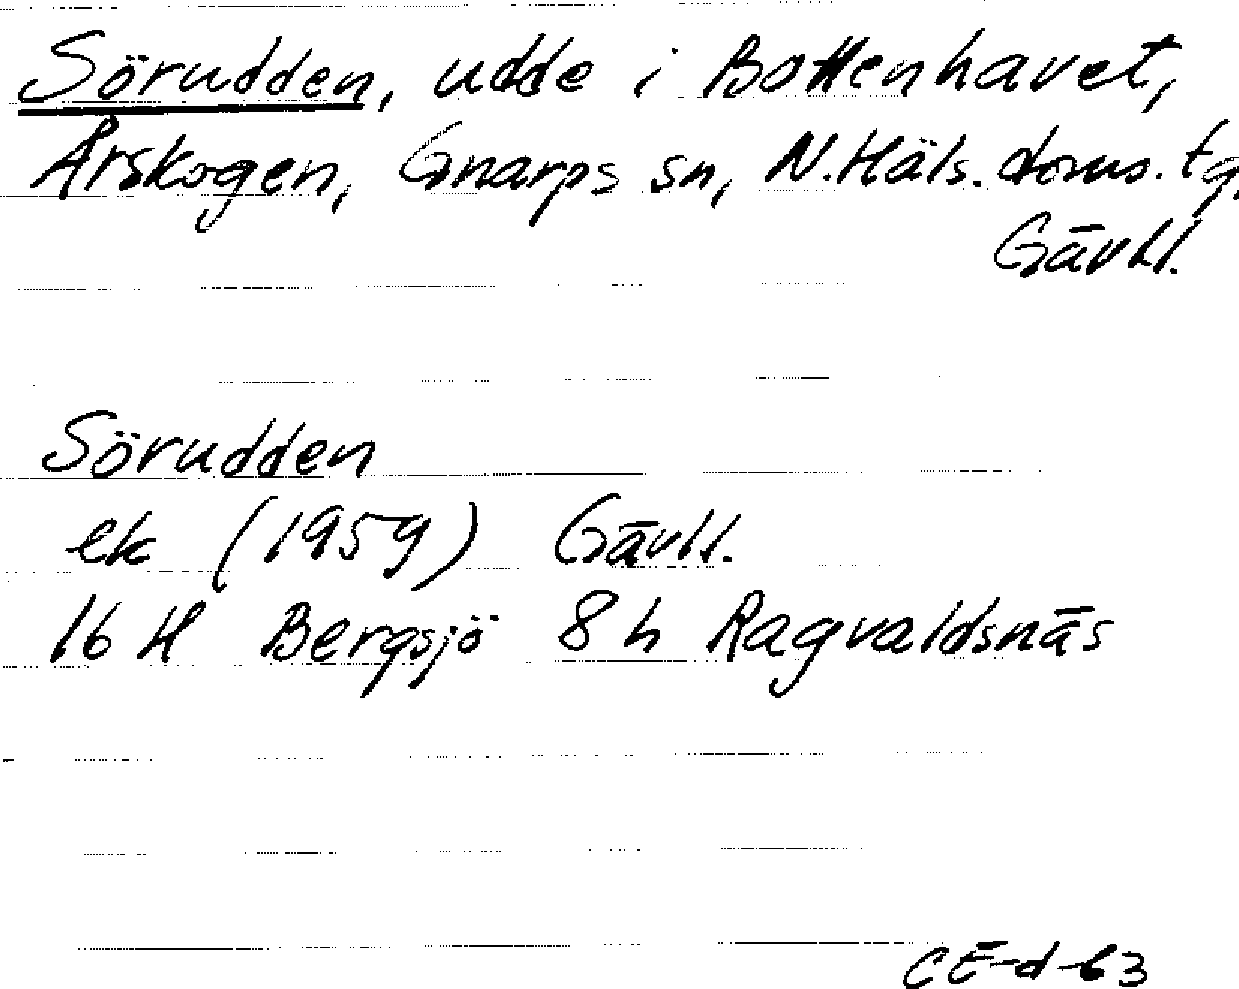 Sörudden, udde i Bottenhavet,
Årskogen, Gnarps sn, N. Häls. doms. tg,
Gävll.
Sörudden
ek (1959) Gävll.
16 H Bergsjö 8 h Ragvaldsnäs
CE-d-63